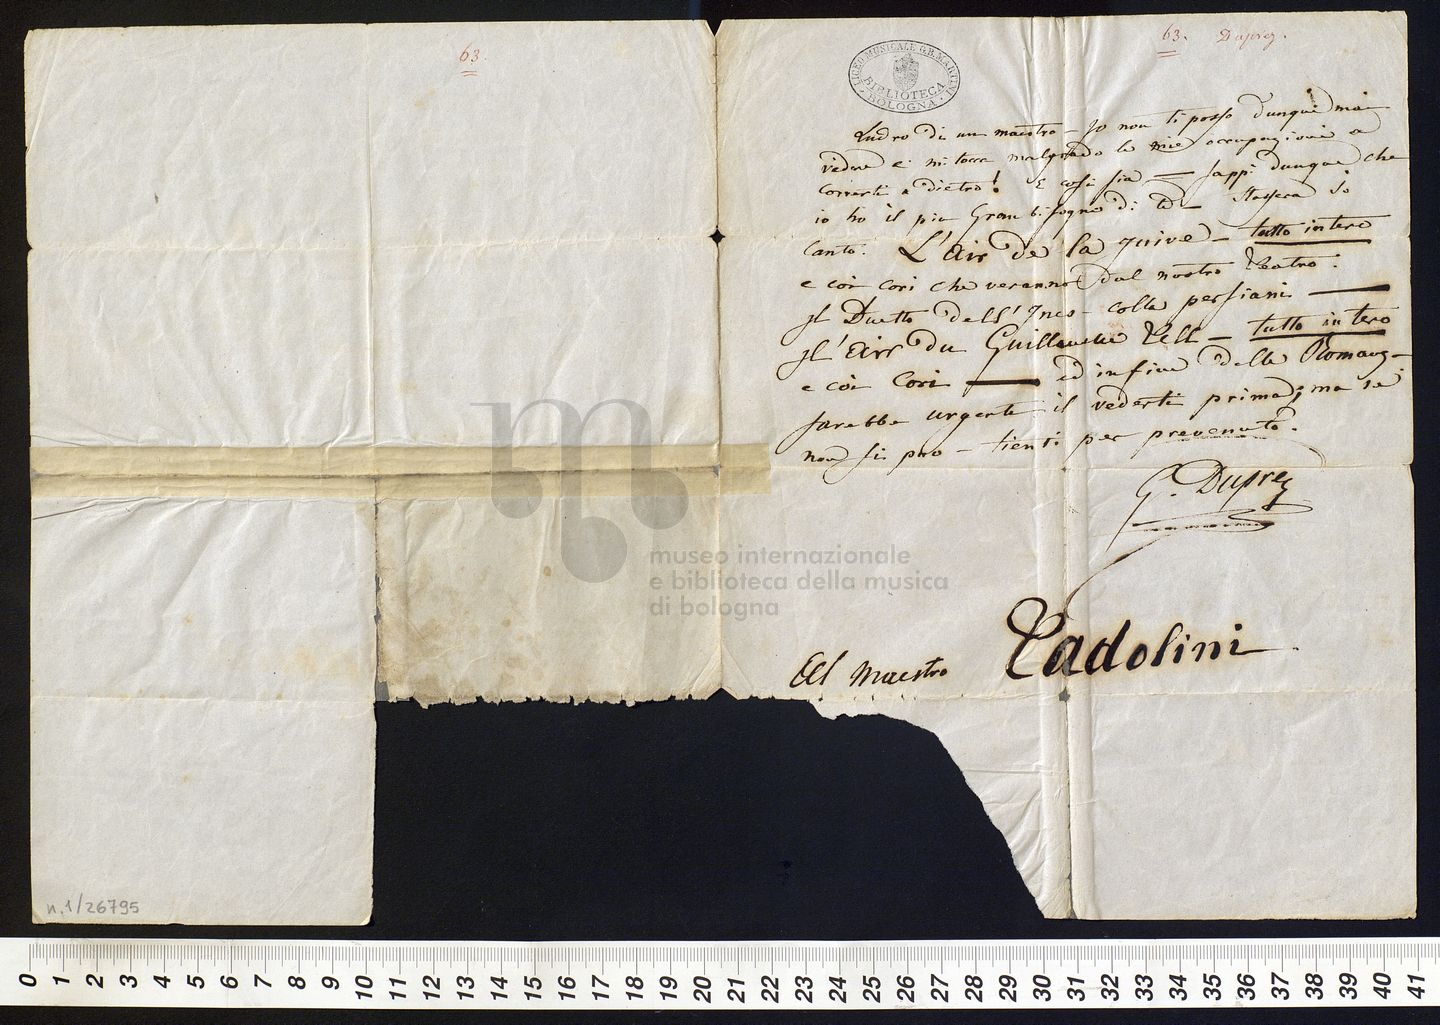 63.
63. Duprez.
LICEO MUSICALE G.B. MARTINI
BIBLIOTECA
BOLOGNA
Ludro di un maestro - Io non ti posso dunque mai
vedere e mi tocca malgrado le mie occupazioni a
correrti a dietro! E così sia — sappi dunque che
io ho il più Gran bisogno di te - Stassera Io
Canto. L'air de la Juive - tutto intero
e coi cori che veranno dal nostro Teatro.
Il Duetto dell' Ines colla persiani —
Il' air du Guillaume Tell - tutto intero
e coi Cori — ed in fine delle Romanz-
sarebbe urgente il vederti prima; ma se
non si puo - tienti per prevenuto.
G. Duprez
Al Maestro Tadolini
museo internazionale
e biblioteca della musica
di bologna
n.1/26795
0 1 2 3 4 5 6 7 8 9 10 11 12 13 14 15 16 17 18 19 20 21 22 23 24 25 26 27 28 29 30 31 32 33 34 35 36 37 38 39 40 41